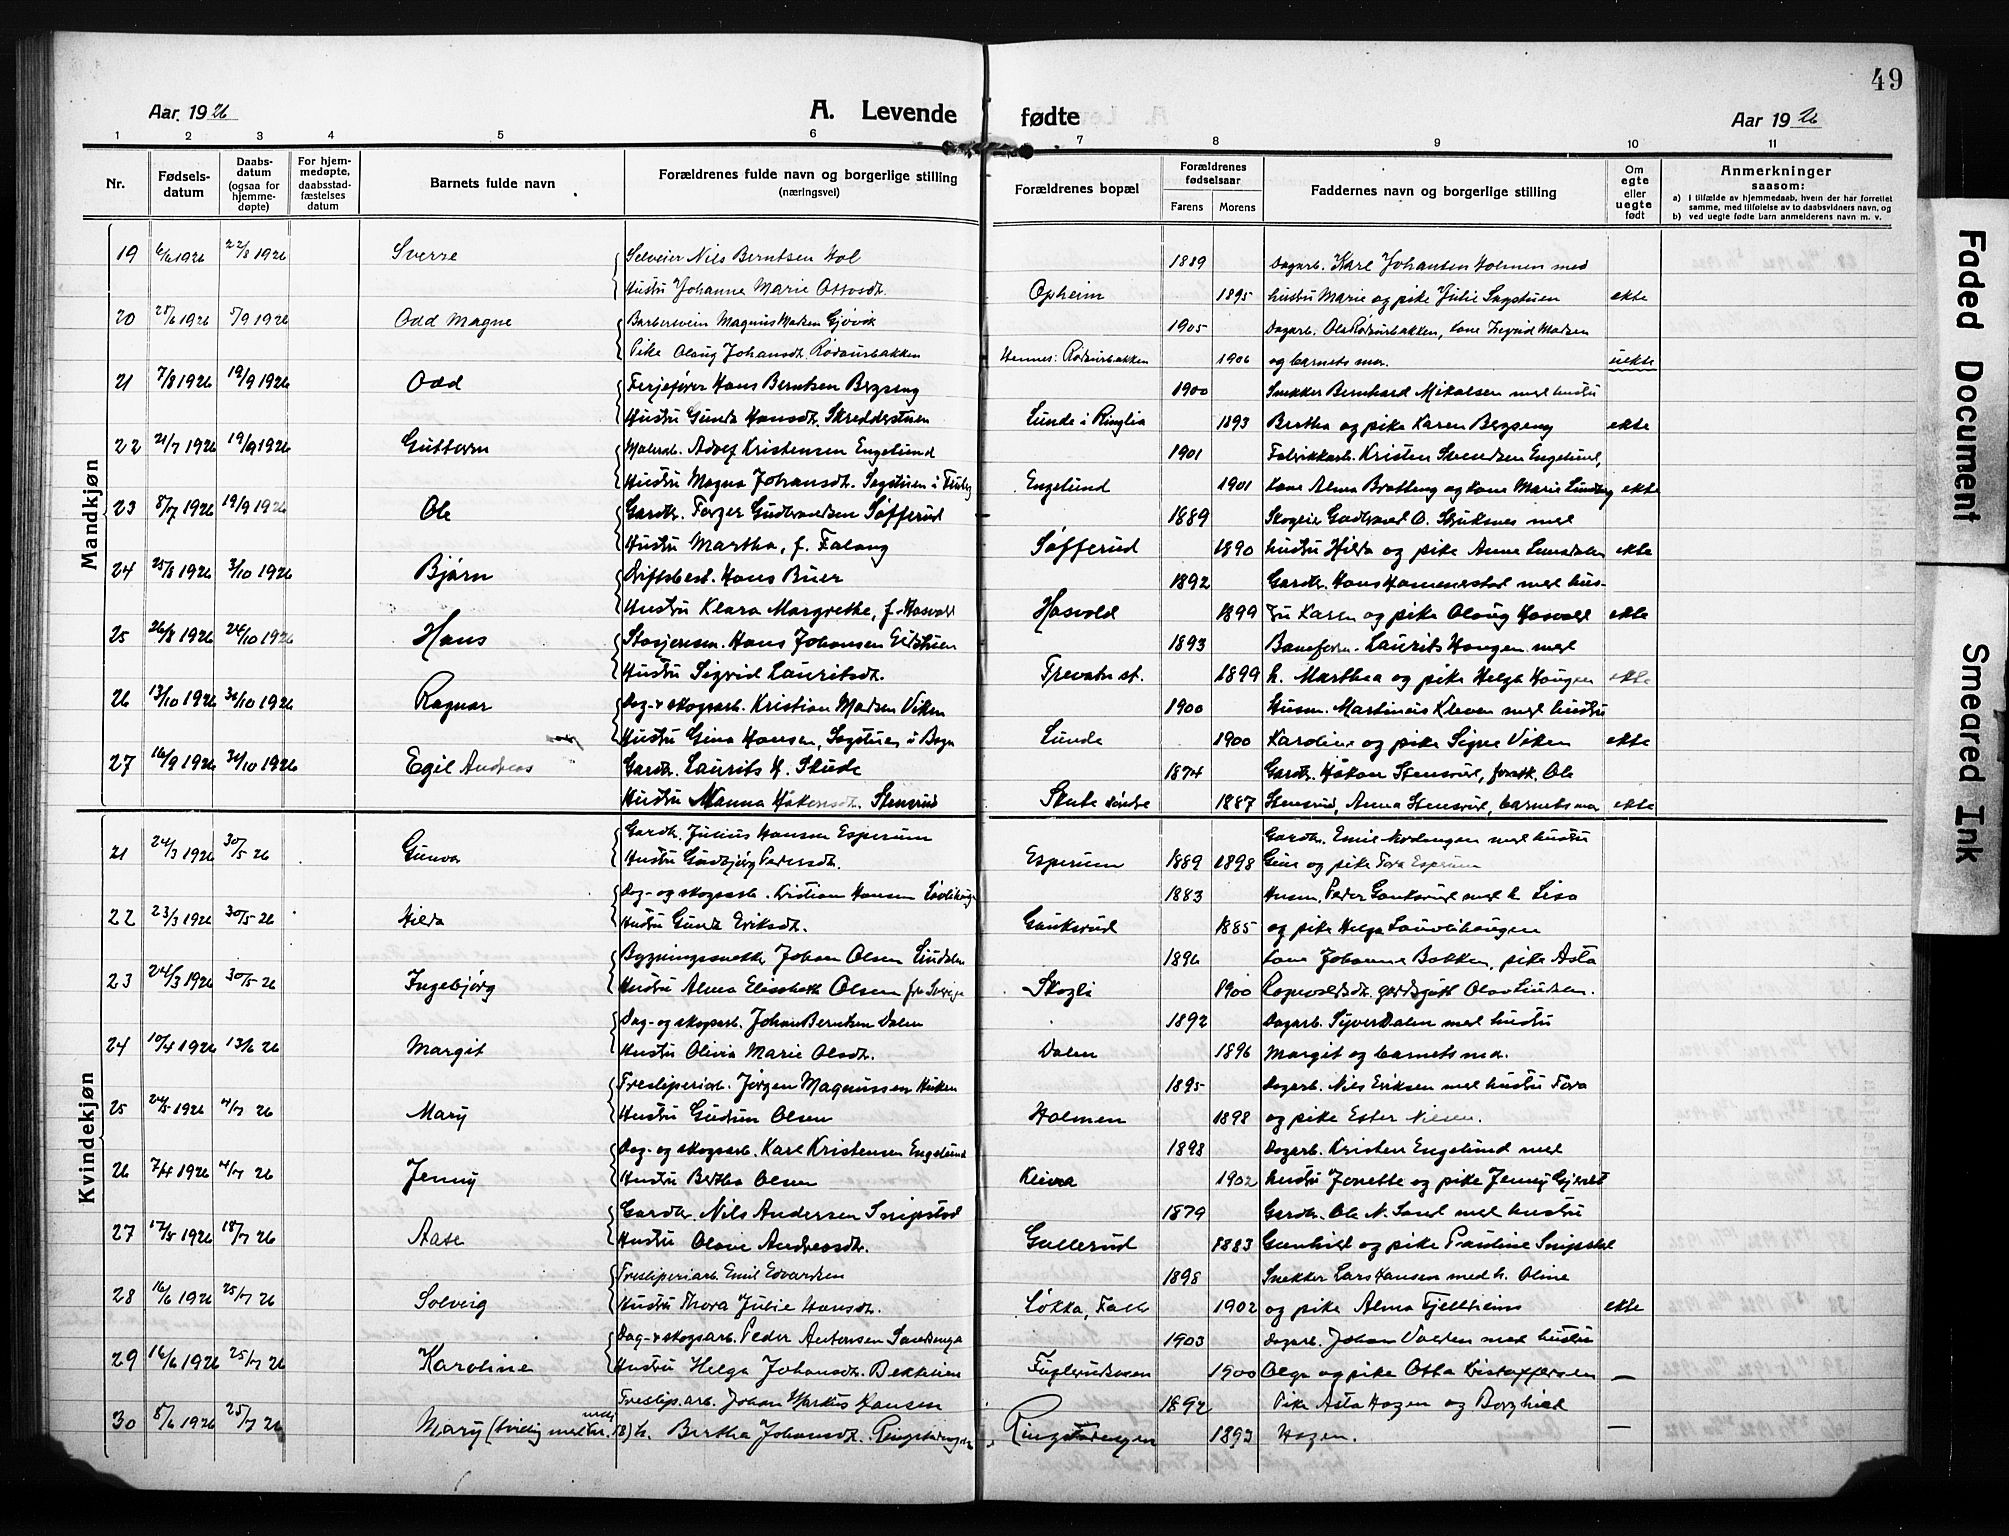 49
Aar 1926 A. Levende fødte Aar 1926
1 2 3 4 5 6 7 8 9 10 11
Nr. Fødselsdatum Daabsdatum (ogsaa for hjemmedøpte) For hjemmedøpte, daabsstadfæstelses datum Barnets fulde navn Forældrenes fulde navn og borgerlige stilling (næringsvei) Forældrenes bopæl Forældrenes fødselsaar Farens Morens Faddernes navn og borgerlige stilling Om egte eller uegte født Anmerkninger saasom:
a) I tilfælde av hjemmedaab, hvem der har forrettet samme, med tilføielse av to daabsvidners navn, og
b) ved uegte fødte barn anmelderens navn m. v.
Mandkjøn
19 6/6 1926 22/8 1926 Sverre Selveier Nils Berntsen Hol 1889 Dagarb. Karl Johansen Holmen med
Hustru Johanne Marie Ottosdt. Opheim 1895 hustru Marie og pike Julie Sagstuen ekte
20 28/6 1926 5/9 1926 Odd Magne Barbersvein Magnus Madsen Gjøvik 1905 Dagarb. Ola Rødsurbakken, kone Ingrid Madsen
Pike Olaug Johansdt. Rødsurbakken Hennes: Rødsurbakken 1906 og barnets mor. uekte
21 7/8 1926 12/9 1926 Odd Ferjefører Hans Berntsen Bergseng 1900 Snekker Bernhard Mikalsen med hustru
Hustru Gunda Hansdt. Skreddestuen Lunde i Ringlia 1893 Bertha og pike Karen Bergseng ekte
22 21/7 1926 19/9 1926 Guttorm Malersv. Adolf Kristensen Engelund 1901 Fabrikkarb. Kristen Svendsen Engelund,
Hustru Magna Johansdt. Sagstuen i Engelund 1901 kone Alma Bratteng og kone Marie Lundeng ekte
23 8/7 1926 19/9 1926 Ole Gardbr. Torger Gudbrandsen Søfferud 1889 Skogeier Gudbrand O. Struksnes med
Hustru Martha, f. Falang Søfferud 1890 hustru Hilda og pike Anne Lunddalen ekte
24 25/8 1926 3/10 1926 Bjørn Driftsbest. Hans Buer 1892 Gardbr. Hans Hammerstad med hus-
Hustru Klara Margrethe, f. Hasvold Hasvold 1899 tru Karen og pike Olaug Hasvold ekte
25 26/8 1926 24/10 1926 Hans Stasjonsm. Hans Johansen Eidstuen 1893 Baneform. Laurits Haugen med
Hustru Sigrid Lauritsdt. Trevatn st. 1899 h. Marthea og pike Helga Haugen ekte
26 13/10 1926 31/10 1926 Ragnar Dag- & skogsarb. Kristian Madsen Viken 1900 Husm. Martinius Kleven med hustru
Hustru Gina Hansen, Sagstuen i Bagn Lunde 1900 Karoline og pike Signe Viken ekte
27 16/9 1926 31/10 1926 Egil Andreas Gardbr. Laurits H. Skude 1874 Gardbr. Håkon Stensrud, Ole
Hustru Manna Håkonsdt. Stensrud Skute søndre 1887 Stensrud, Anna Stensrud, barnets mor ekte
Kvindekjøn
21 24/3 1926 30/5 26 Gunvor Gardbr. Julius Hansen Esperum Gardbr. Emil Nordengen med hustru
Hustru Gudbjørg Pedersdt. Esperum 1889 1898 Gina og pike Tora Esperum
22 23/3 1926 30/5 26 Hilda Dag- og skogsarb. Kristian Hansen Løvlihaugen 1883 Husm. Peder Gauksrud med h. Lisa
Hustru Gunda Eriksdt. Gauksrud 1885 og pike Helga Løvlihaugen
23 24/3 1926 30/5 26 Ingebjørg Bygningssnekker Johan Olsen Lindalen 1896 kone Johanne Bakken, pike Asta
Hustru Alma Elisabeth Olsen fra Sverige Skogli 1900 Ragnvaldsdt. gardsgutt Olav Lindsen.
24 10/4 1926 13/6 26 Margit Dag- og skogsarb. Johan Berntsen Dalen 1892 Dagarb. Syver Dalen med hustru
Hustru Olivia Marie Olsdt. Dalen 1896 Margit og barnets mor.
25 24/5 1926 4/7 26 Mary Tresliperiarb. Jørgen Magnussen Huken 1895 Dagarb. Nils Eriksen med hustru Tora
Hustru Gudrun Olsen Holmen 1898 og pike Ester Nilsen.
26 7/4 1926 4/7 26 Jenny Dag- og skogsarb. Karl Kristensen Engelund 1898 Dagarb. Kristen Engelund med
Hustru Bertha Olsen Kleiva 1902 hustru Jonette og pike Jenny Gjersti
27 12/5 1926 18/7 26 Aase Gardbr. Nils Andersen Snipstad 1879 Gardbr. Ole N. Sand med hustru
Hustru Olave Andreasdt. Gullerud 1883 Gunhild og pike Pauline Snipstad
28 16/6 1926 25/7 26 Solveig Tresliperiarb. Emil Edvardsen 1898 Snekker Lars Hansen med h. Oline
Hustru Thora Julie Hansdt. Løkka, Fall 1902 og pike Alma Fjellheim ekte
29 16/6 1926 25/7 26 Karoline Dag- & skogsarb. Peder Antonsen Sandenga 1903 Dagarb. Johan Volden med hustru
Hustru Helga Johansdt. Bekkelien Fuglerudsosen 1900 Olga og pike Otta Kristoffersen —
30 8/6 1926 25/7 26 Mary (tvilling med Nr. 18) Treslip.arb. Johan Markus Hansen 1892 Pike Asta Hagen og Borghild
h. Bertha Johansdt. Ringstadengen Ringstadengen 1893 Hagen. —
Faded Document
Smeared Ink